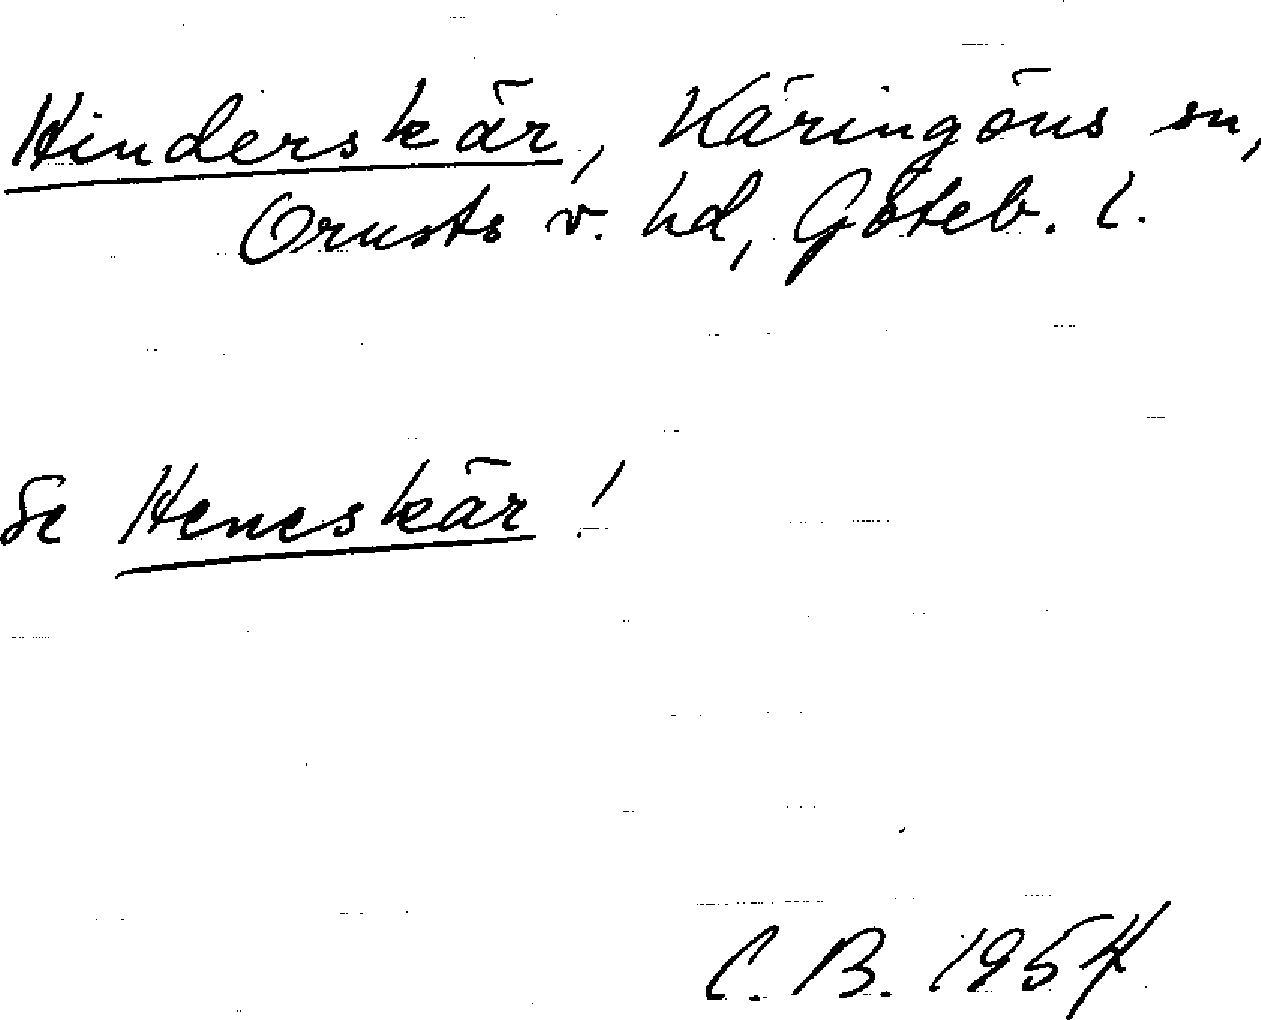 Hinderskär, Käringöns sn,
Orusts v. hd, Göteb. l.
Se Heneskär!
C. B. 1954